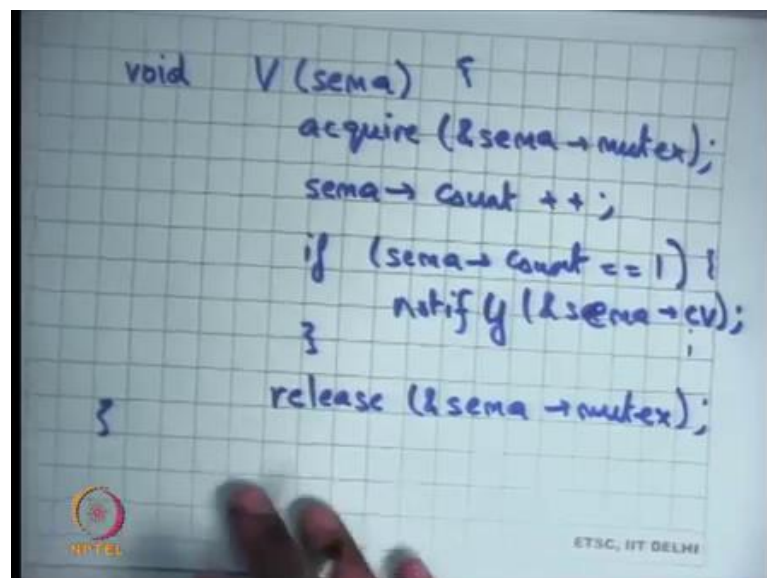 void V (sema) {
acquire (&sema → mutex);
sema → count ++;
if (sema → count == 1) {
notify (&sema → cv);
}
release (&sema → mutex);
}
NPTEL
ETSC, IIT DELHI